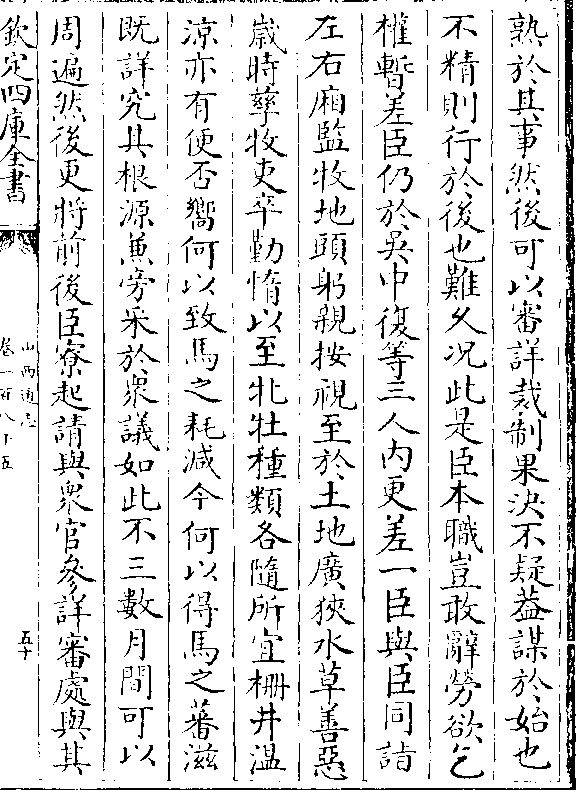 熟於其事然後可以審詳裁制果決不疑葢謀於始也
不精則行於後也難乆况此是臣本職豈敢辭勞欲乞
權暫差臣仍於吳中復等三人内更差一臣與臣同詣
左右廂監牧地頭躬親按視至於土地廣狹水草善惡
歳時孳牧吏卒勤惰以至牝牡種類各隨所宜柵井温
凉亦有便否嚮何以致馬之耗減今何以得馬之蕃滋
既詳究其根源兼旁采於衆議如此不三數月間可以
周遍然後更將前後臣寮起請與衆官參詳審處與其
欽定四庫全書
山西通志
卷一百八十五
五十